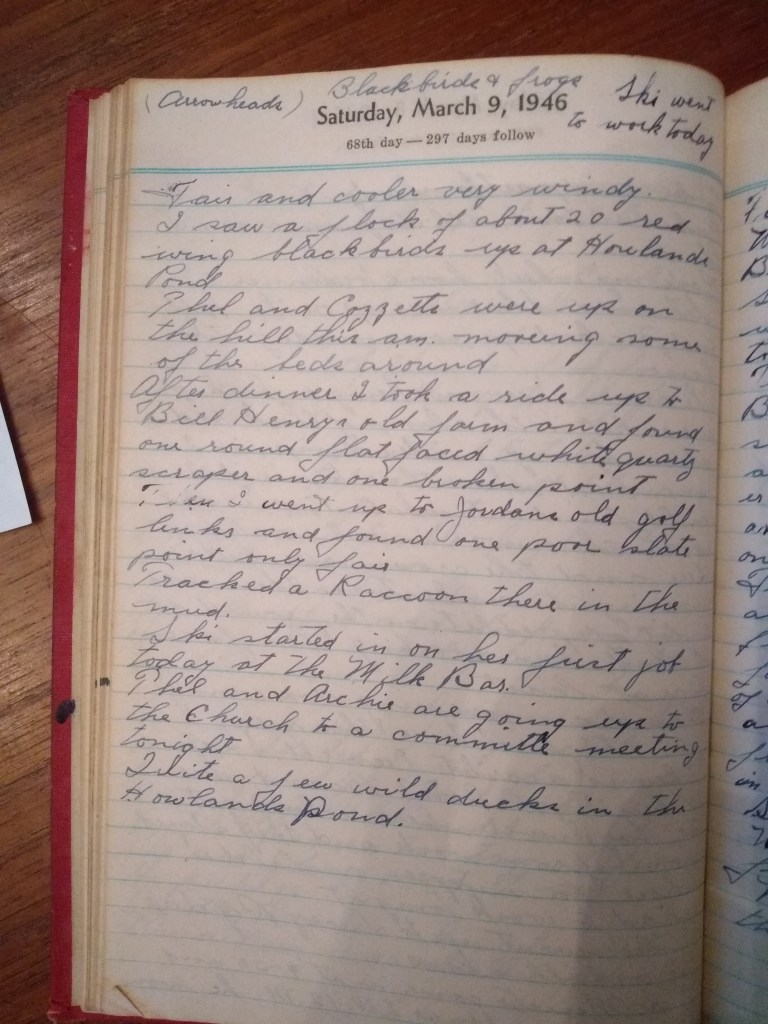 Blackbirds & frogs
(Arrowheads)
Ski went
to work today
Saturday, March 9, 1946
68th day — 297 days follow
Fair and cooler very windy.
I saw a flock of about 20 red
wing blackbirds up at Howlands
Pond
Phil and Cozzette were up on
the hill this am. moveing some
of the beds around
After dinner I took a ride up to
Bill Henrys old farm and found
one round flat faced white quartz
scraper and one broken point
Then I went up to Jordans old golf
links and found one poor slate
point only fair
Tracked a Raccoon there in the
mud.
Ski started in on her first job
today at the Milk Bar.
Phil and Archie are going up to
the Church to a committe meeting
tonight
Quite a few wild ducks in the
Howlands Pond.